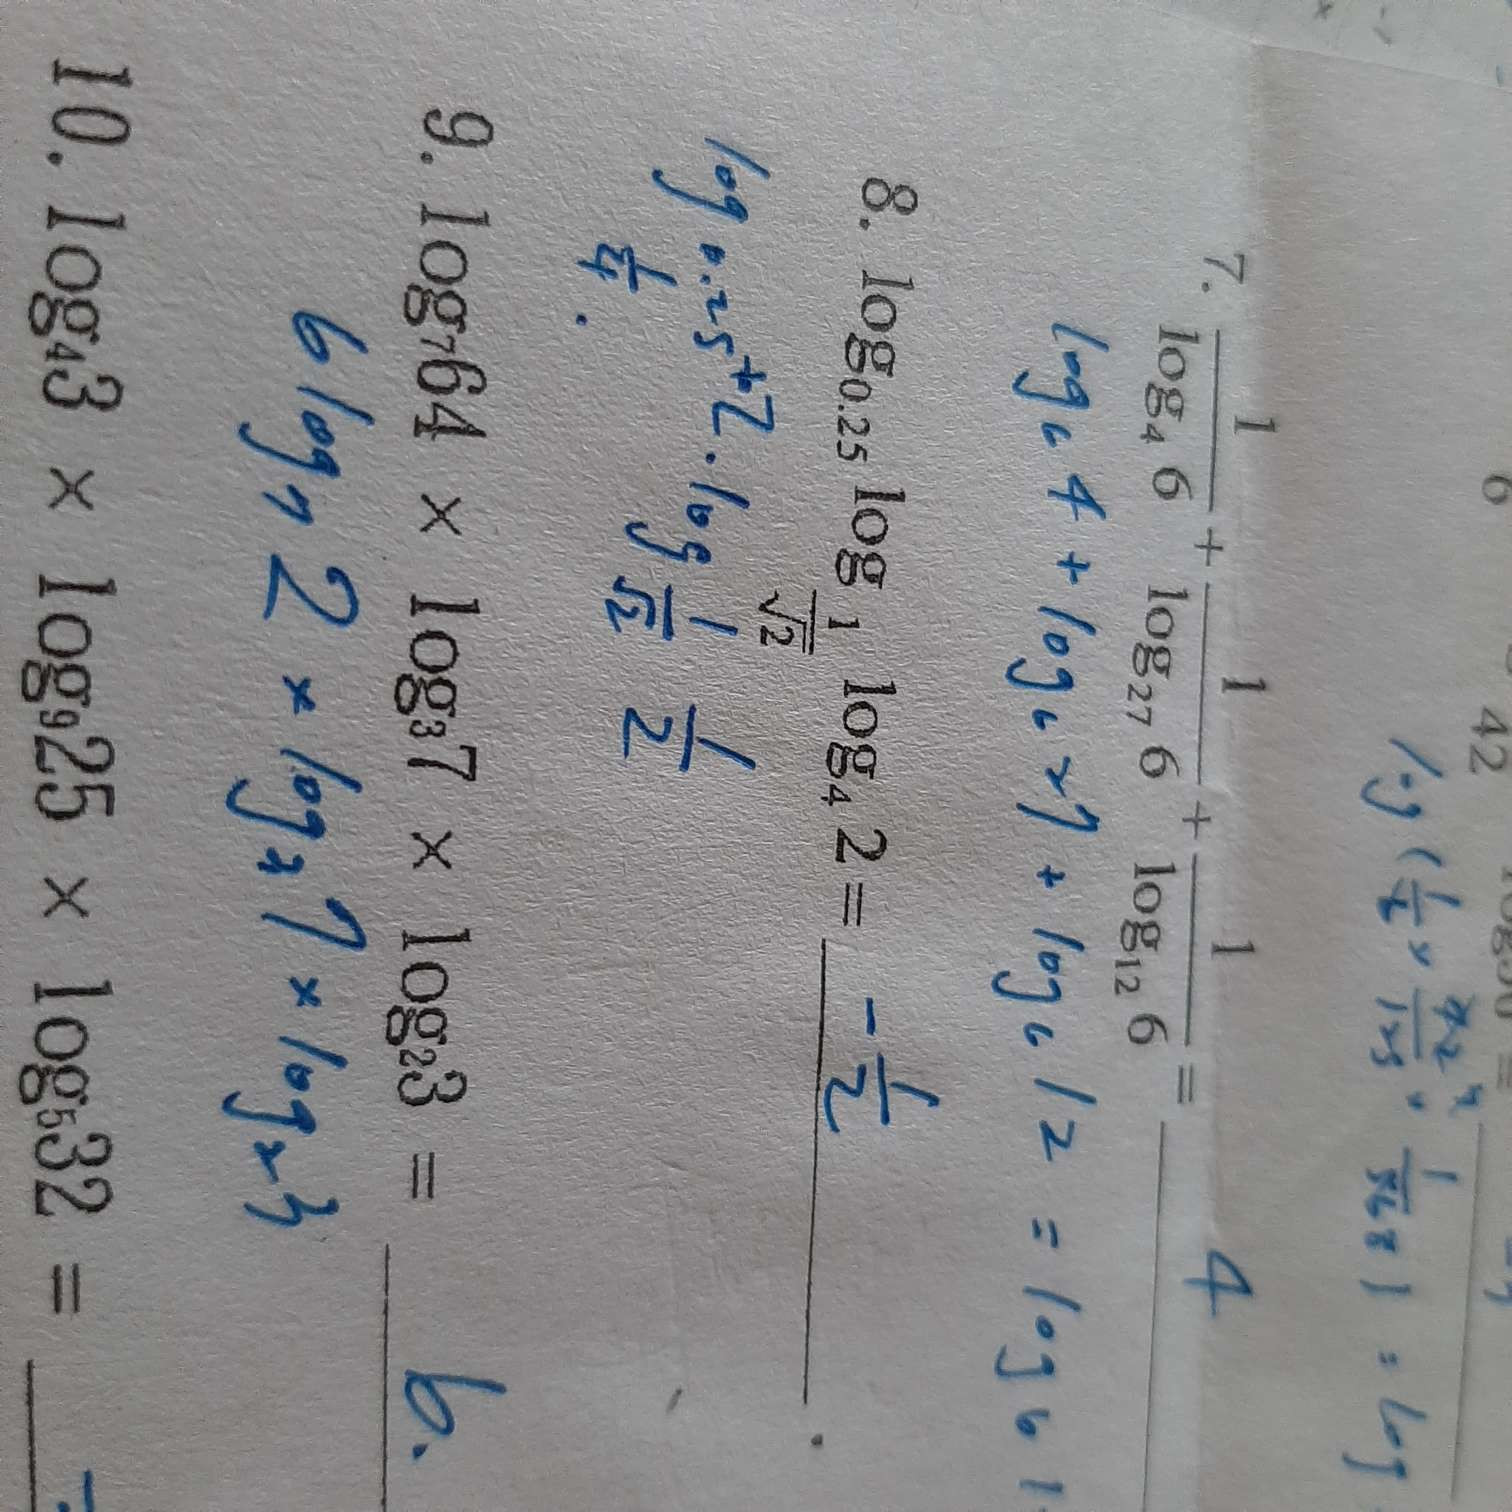 6 42
7. 1/log₄ 6 + 1/log₂₇ 6 + 1/log₁₂ 6 = 4
log₆ 4 + log₆ 27 + log₆ 12 = log 6
8. log₀.₂₅ log_(1/√2) log₄ 2 = -1/2
log 0.25 +2 · log 1/√2 1/2
1/4 .
9. log₇64 × log₃7 × log₂3 = 6.
6 log₇ 2 × log₃ 7 × log₂ 3
10. log₄3 × log₉25 × log₅32 =